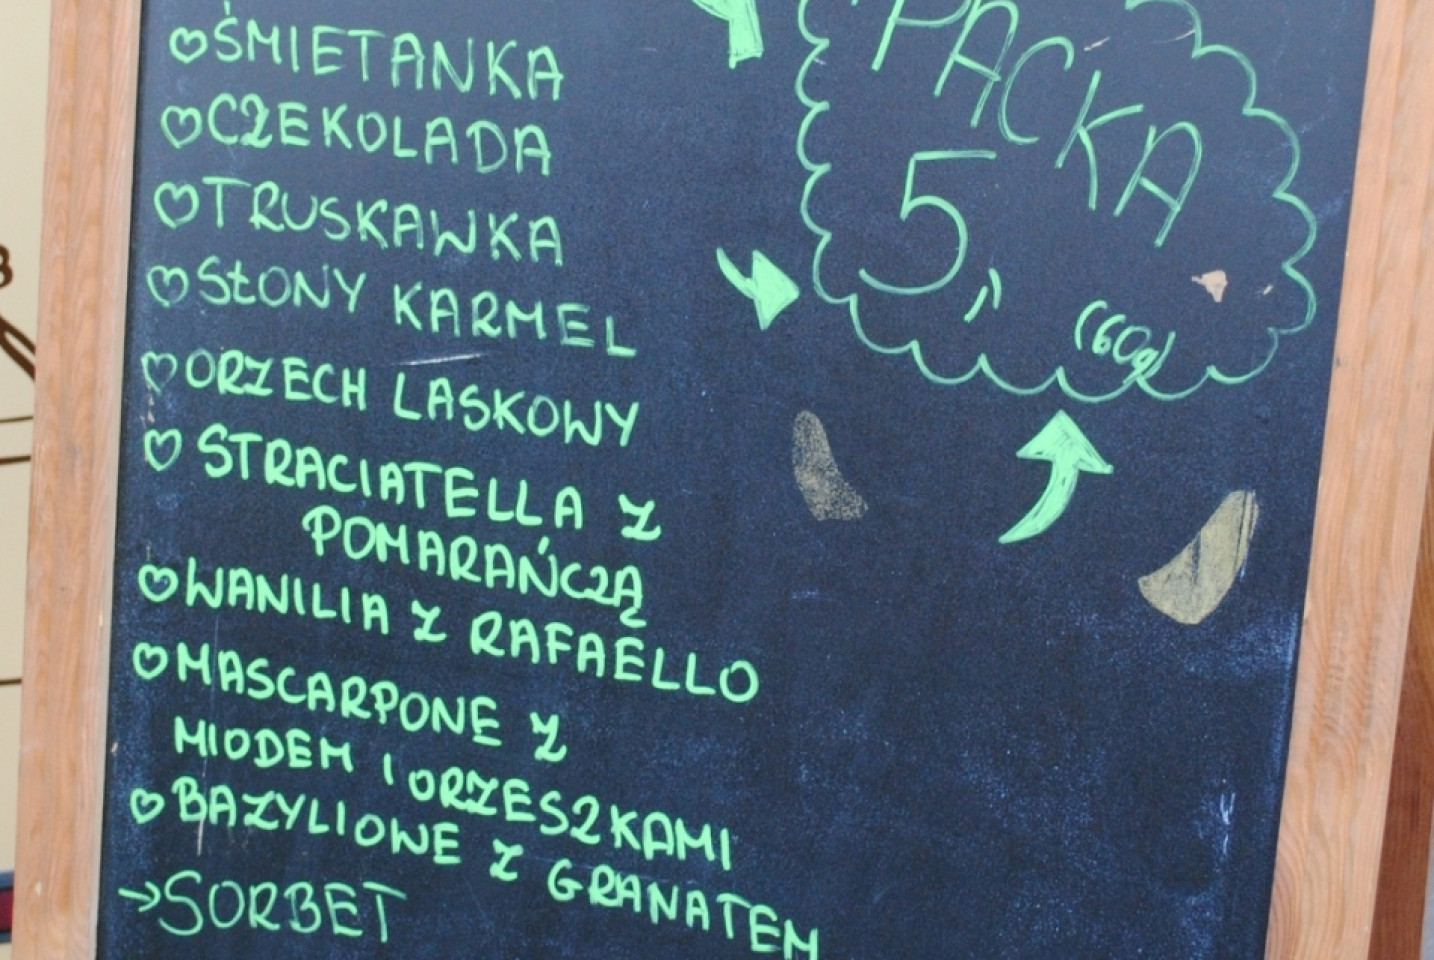 ŚMIETANKA
CZEKOLADA
TRUSKAWKA
SŁONY KARMEL
ORZECH LASKOWY
STRACIATELLA Z
POMARAŃCZĄ
WANILIA Z RAFAELLO
MASCARPONE Z
MIODEM I ORZESZKAMI
BAZYLIOWE Z GRANATEM
→SORBET
PACKA
5,-
(60g)